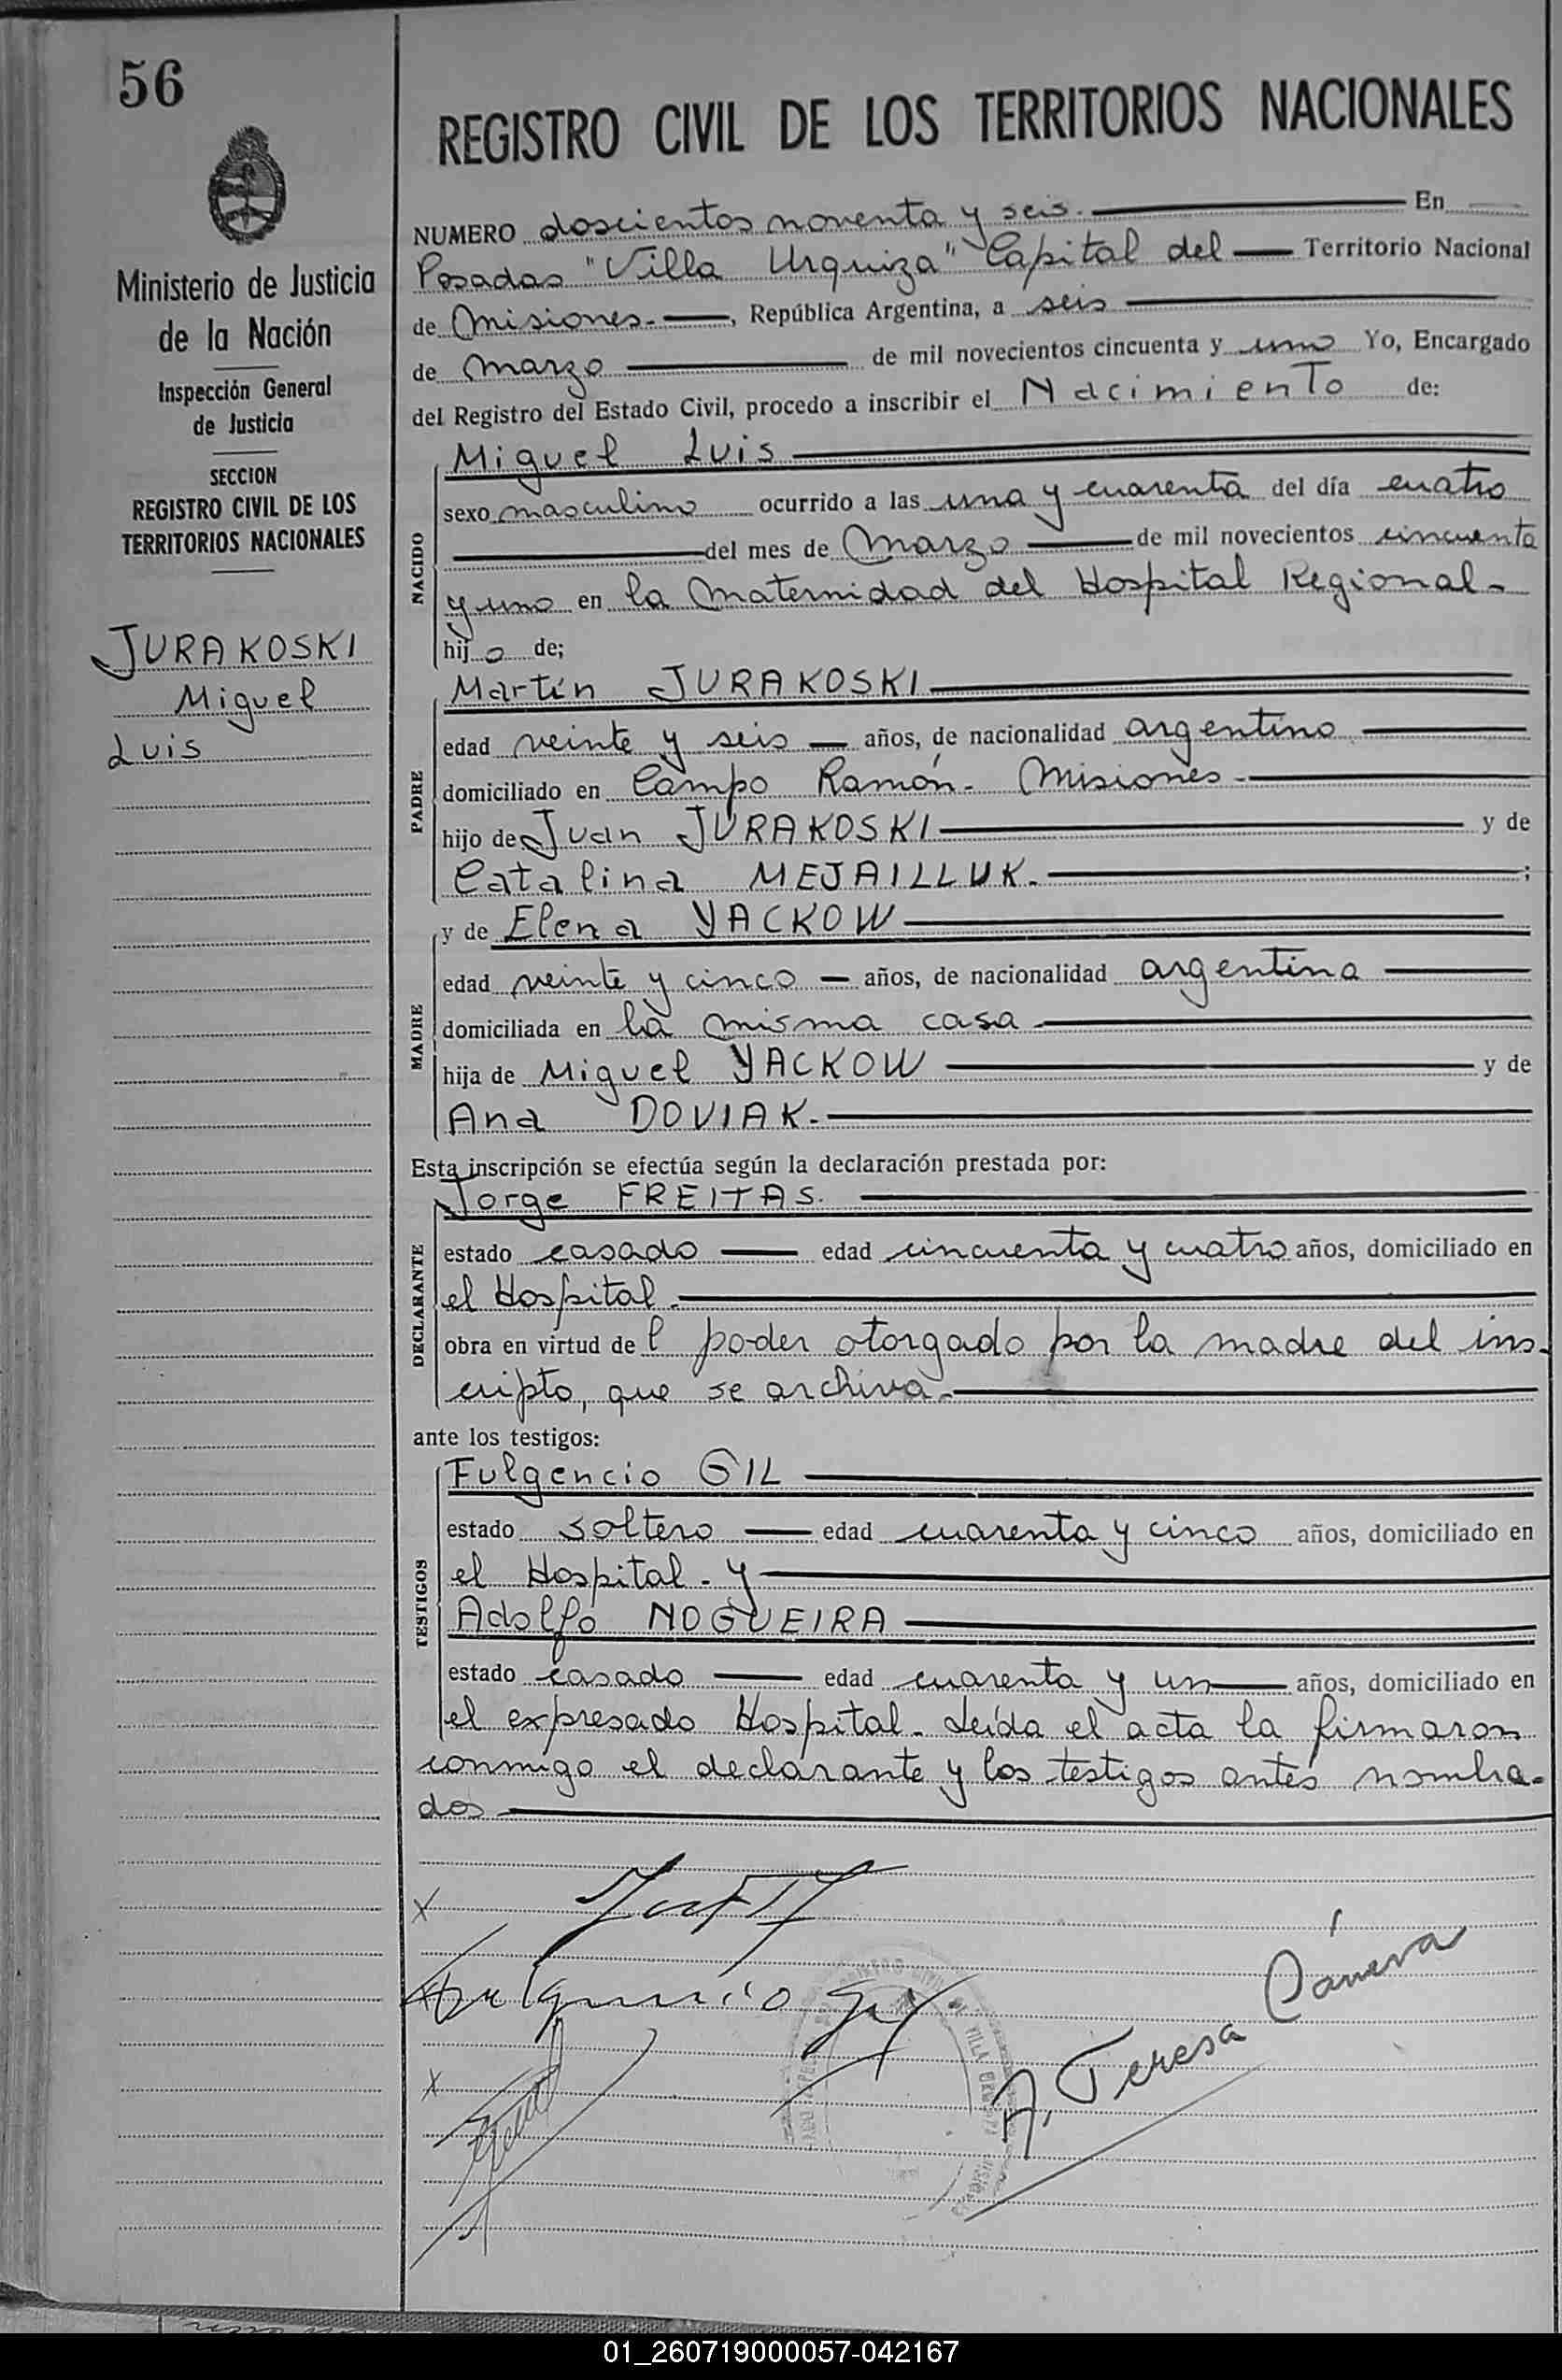 56
Ministerio de Justicia
de la Nación
Inspección General
de Justicia
SECCION
REGISTRO CIVIL DE LOS
TERRITORIOS NACIONALES
JURAKOSKI
Miguel
Luis
REGISTRO CIVIL DE LOS TERRITORIOS NACIONALES
NUMERO doscientos noventa y seis. En
Posadas "Villa Urquiza" Capital del Territorio Nacional
de Misiones.-, República Argentina, a seis
de marzo de mil novecientos cincuenta y uno Yo, Encargado
del Registro del Estado Civil, procedo a inscribir el Nacimiento de:
NACIDO
Miguel Luis
sexo masculino ocurrido a las una y cuarenta del día cuatro
del mes de marzo de mil novecientos cincuenta
y uno en la maternidad del Hospital Regional-
hijo de;
PADRE
Martín JURAKOSKI
edad veinte y seis años, de nacionalidad argentino
domiciliado en Campo Ramón- Misiones-
hijo de Juan JURAKOSKI y de
Catalina MEJAILLUK.;
MADRE
y de Elena YACKOW
edad veinte y cinco años, de nacionalidad argentina
domiciliada en la misma casa
hija de Miguel YACKOW y de
Ana DOVIAK.
Esta inscripción se efectúa según la declaración prestada por:
DECLARANTE
Jorge FREITAS.
estado casado edad cincuenta y cuatro años, domiciliado en
el Hospital.
obra en virtud del poder otorgado por la madre del ins-
cripto, que se archiva.
ante los testigos:
TESTIGOS
Fulgencio GIL
estado soltero edad cuarenta y cinco años, domiciliado en
el Hospital- y
Adolfo NOGUEIRA
estado casado edad cuarenta y un años, domiciliado en
el expresado Hospital- Leída el acta la firmaron
conmigo el declarante y los testigos antes nombra-
dos
x
Fulgencio Gil
x
A. Teresa Cáneva
01_260719000057-042167